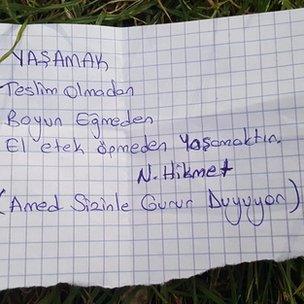 YAŞAMAK
Teslim Olmadan
Boyun Eğmeden
El etek öpmeden Yaşamaktır.
N. Hikmet
(Amed Sizinle Gurur Duyuyor)